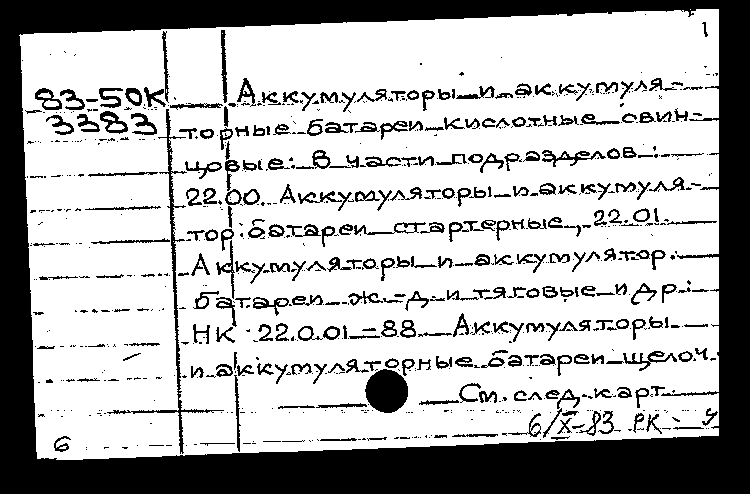 1
83-50К Аккумуляторы и аккумуля-
3383 торные батареи кислотные свин-
цовые: В части подразделов:
22.00. Аккумуляторы и аккумуля-
тор. батареи стартерные, 22.01.
Аккумуляторы и аккумулятор.
батареи ж.-д. и тяговые и др.:
НК 22.0.01-88 Аккумуляторы
и аккумуляторные батареи щелоч.
См. след. карт.
6/X-83 РК-
6